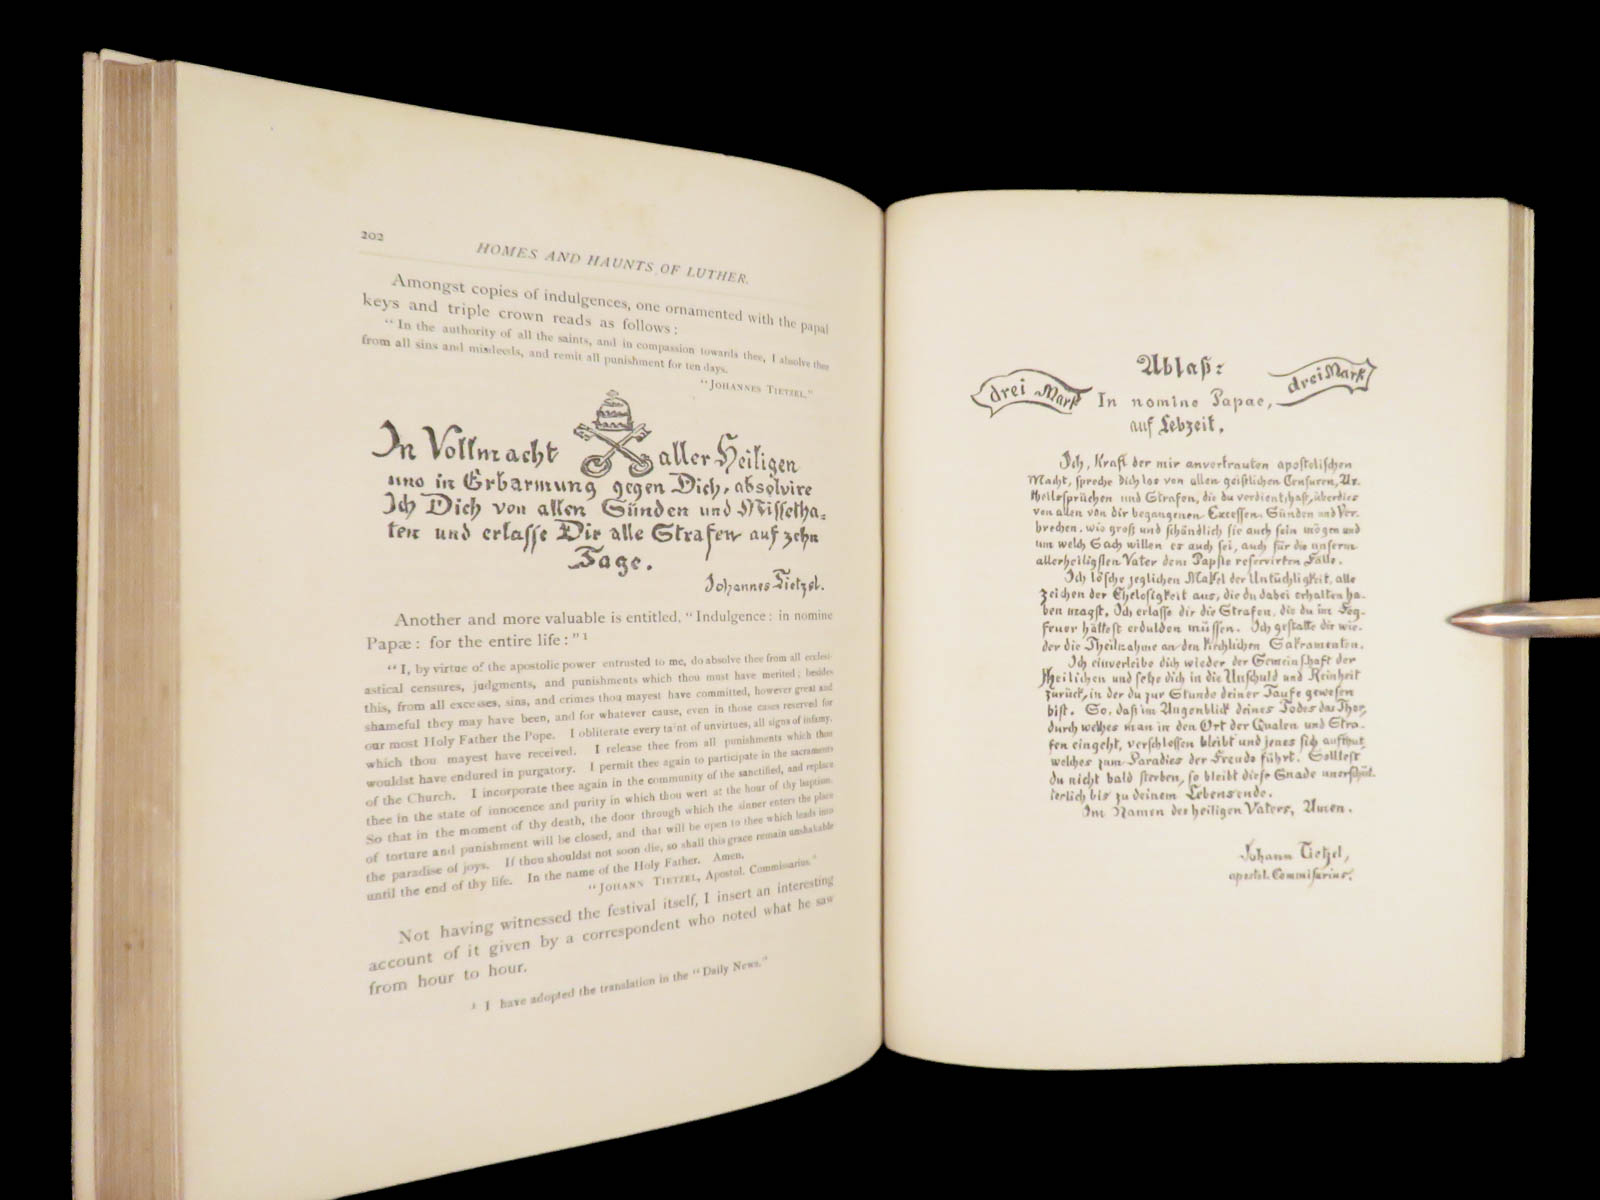 202
HOMES AND HAUNTS OF LUTHER.
Amongst copies of indulgences, one ornamented with the papal
keys and triple crown reads as follows:
"In the authority of all the saints, and in compassion towards thee, I absolve thee
from all sins and misdeeds, and remit all punishment for ten days.
"JOHANNES TIETZEL."
In Vollmacht aller Heiligen
und in Erbarmung gegen Dich, absolvire
Ich Dich von allen Sünden und Missetha=
ten und erlasse Dir alle Strafen auf zehn
Tage.
Johannes Tietzel.
Another and more valuable is entitled, "Indulgence: in nomine
Papæ: for the entire life:" 1
"I, by virtue of the apostolic power entrusted to me, do absolve thee from all ecclesi-
astical censures, judgments, and punishments which thou must have merited; besides
this, from all excesses, sins, and crimes thou mayest have committed, however great and
shameful they may have been, and for whatever cause, even in those cases reserved for
our most Holy Father the Pope. I obliterate every taint of unvirtues, all signs of infamy,
which thou mayest have received. I release thee from all punishments which thou
wouldst have endured in purgatory. I permit thee again to participate in the sacraments
of the Church. I incorporate thee again in the community of the sanctified, and replace
thee in the state of innocence and purity in which thou wert at the hour of thy baptism.
So that in the moment of thy death, the door through which the sinner enters the place
of torture and punishment will be closed, and that will be open to thee which leads into
the paradise of joys. If thou shouldst not soon die, so shall this grace remain unshakable
until the end of thy life. In the name of the Holy Father. Amen.
"JOHANN TIETZEL, Apostol. Commissarius."
Not having witnessed the festival itself, I insert an interesting
account of it given by a correspondent who noted what he saw
from hour to hour.
1 I have adopted the translation in the "Daily News."
Ablaß:
drei Mark
drei Mark
In nomine Papae,
auf Lebzeit.
Ich, Kraft der mir anvertrauten apostolischen
Macht, spreche Dich los von allen geistlichen Censuren, Ur-
theilssprüchen und Strafen, die du verdient hast, überdies
von allen von dir begangenen Excessen, Sünden und Ver-
brechen, wie groß und schändlich sie auch sein mögen und
um welch Sach willen es auch sei, auch für die unserm
allerheiligsten Vater dem Papste reservirten Fälle.
Ich lösche jeglichen Makel der Untüchligkeit, alle
zeichen der Ehelosigkeit aus, die du dabei erhalten ha-
ben magst. Ich erlasse dir die Strafen, die du im Feg-
feuer hättest erdulden müssen. Ich gestatte dir wie-
der die Theilnahme an den kirchlichen Sakramenten.
Ich einverleibe dich wieder der Gemeinschaft der
Heilichen und setze dich in die Unschuld und Reinheit
zurück, in der du zur Stunde deiner Taufe gewesen
bist. So, daß im Augenblick deines Todes das Thor,
durch welches man in den Ort der Qualen und Stra-
fen eingeht, verschlossen bleibt und jenes sich aufthut,
welches zum Paradies der Freude führt. Solltest
du nicht bald sterben, so bleibt diese Gnade unerschüt-
terlich bis zu deinem Lebensende.
Im Namen des heiligen Vaters, Amen.
Johann Tietzel,
apostol. Commisarius.